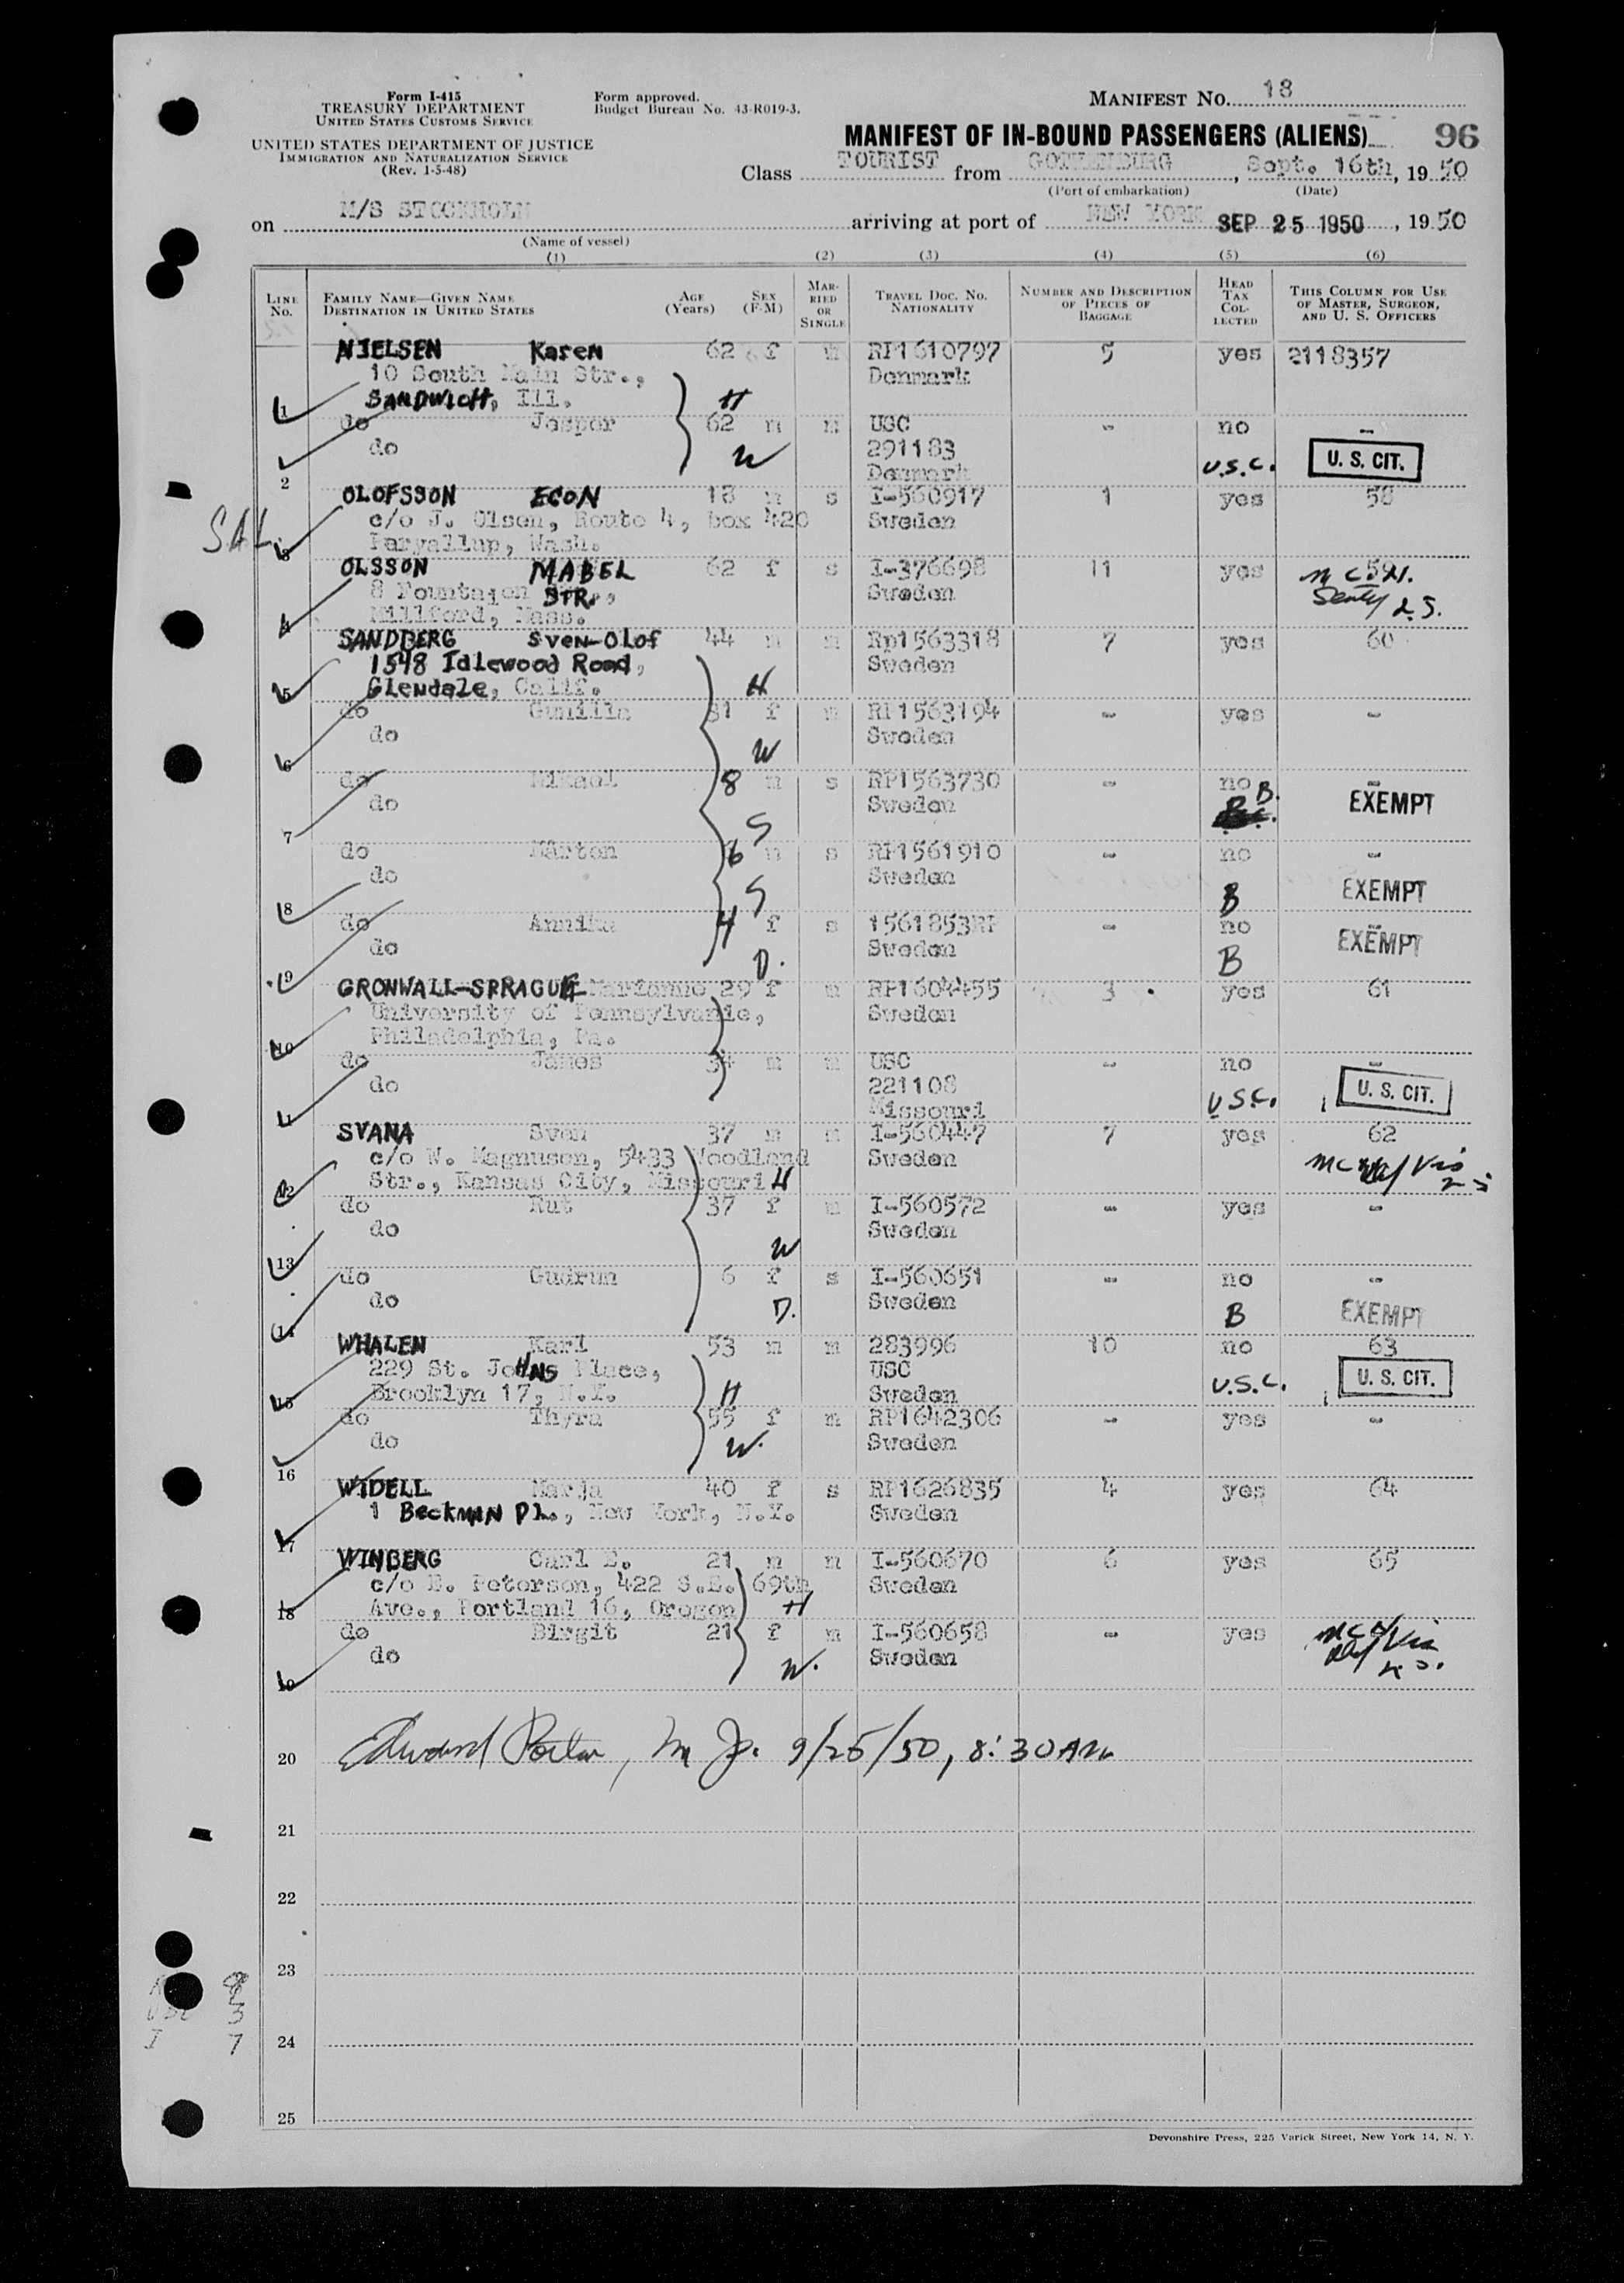 Form I-415
TREASURY DEPARTMENT
UNITED STATES CUSTOMS SERVICE
UNITED STATES DEPARTMENT OF JUSTICE
IMMIGRATION AND NATURALIZATION SERVICE
(Rev. 1-5-48)
Form approved.
Budget Bureau No. 43-R019-3.
MANIFEST NO. 18
MANIFEST OF IN-BOUND PASSENGERS (ALIENS) 96
Class TOURIST from GOTHENBURG, Sept. 16th, 19 50
(Port of embarkation) (Date)
on M/S STOCKHOLM arriving at port of NEW YORK SEP 25 1950, 19 50
(Name of vessel)
(1) (2) (3) (4) (5) (6)
LINE NO. FAMILY NAME—GIVEN NAME DESTINATION IN UNITED STATES AGE (YEARS) SEX (F-M) MARRIED OR SINGLE TRAVEL DOC. NO. NATIONALITY NUMBER AND DESCRIPTION OF PIECES OF BAGGAGE HEAD TAX COLLECTED THIS COLUMN FOR USE OF MASTER, SURGEON, AND U. S. OFFICERS
NIELSEN Karen 62 f m RP1610797 5 yes 2118357
10 South Main Str., Denmark
1 SANDWICH, Ill. H
do Jesper 62 m m USC - no -
do 291183 U. S. CIT.
W Denmark U.S.C.
2
OLOFSSON EGON 18 m s I-560917 1 yes 58
c/o J. Olsen, Route 4, box 420 Sweden
S.A.L. 3 Paryallup, Wash.
OLSSON MABEL 62 f s I-376698 11 yes 59
8 Fountajon STR., Sweden
4 Millford, Mass.
SANDBERG Sven-Olof 44 m m Rp1563318 7 yes 60
1548 Idlewood Road, Sweden
5 Glendale, Calif. H
do Gunilla 31 f m RP1563194 - yes -
do Sweden
6 W
do Mikael 8 m s RP1563730 - no B. -
do Sweden EXEMPT
7 S
do Mårten 6 m s RP1561910 - no -
do Sweden
8 S B EXEMPT
do Annika 4 f s 1561853RP - no
do Sweden EXEMPT
9 D. B
GRONWALL-SPRAGUE Marianne 29 f m RP1604455 3 yes 61
University of Pennsylvanie, Sweden
10 Philadelphia, Pa.
do James 34 m m USC - no -
do 221108 U. S. CIT.
11 Missouri U.S.C.
SVANA Sven 37 m m I-560447 7 yes 62
c/o W. Magnuson, 5433 Woodland Sweden
12 Str., Kansas City, Missouri H
do Rut 37 f m I-560572 - yes -
do Sweden
13 W
do Gudrun 6 f s I-560651 - no -
do Sweden
14 D. B EXEMPT
WHALEN Karl 53 m m 283996 10 no 63
229 St. JoHNS Place, USC U. S. CIT.
15 Brooklyn 17, N.Y. H Sweden U.S.C.
do Thyra 55 f m RP1642306 - yes -
do W. Sweden
16
WIDELL Marja 40 f s RP1626835 4 yes 64
1 Beckman PL., New York, N.Y. Sweden
17
WINBERG Carl E. 21 m m I-560670 6 yes 65
c/o E. Peterson, 422 S.E. 69th Sweden
18 Ave., Portland 16, Oregon H
do Birgit 21 f m I-560658 - yes
do Sweden
19 W.
20 Edward Porter, 9/25/50, 8:30 AM
21
22
23
24
25
3
I 7
Devonshire Press, 225 Varick Street, New York 14, N. Y.